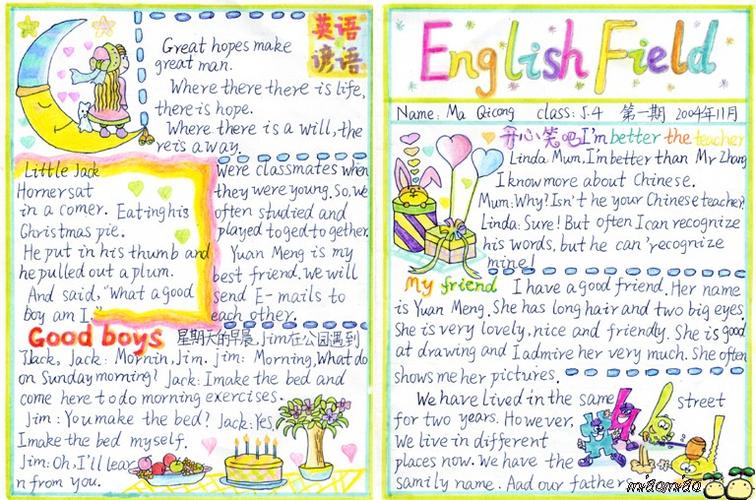 Great hopes make
great man.
Where there there is life,
there is hope.
Where there is a will, the
re is a way.
英语
谚语
Little Jack
Horner sat
in a corner. Eating his
Christmas pie.
He put in his thumb and
he pulled out a plum.
And said, "What a good
boy am I."
were classmates when
they were young. So, we
often studied and
played toged-to gether.
Yuan Meng is my
best friend. We will
send E-mails to
each other.
Good boys 星期天的早晨, Jim在公园遇到
Jack. Jack: Mornin, Jim. Jim: Morning, What do
on Sunday morning? Jack: I make the bed and
come here to do morning exercises.
Jim: You make the bed? Jack: Yes
I make the bed myself.
Jim: Oh, I'll lear
n from you.
English Field
Name: Ma Qicong class: 5.4 第一期 2004年11月
开心笑吧 I'm better the teacher
Linda: Mum, I'm better than Mr Zhang
I know more about Chinese.
Mum: Why? Isn't he your Chinese teacher?
Linda: Sure! But often I can recognize
his words, but he can 'recognize
mine!
My friend I have a good friend. Her name
is Yuan Meng. She has long hair and two big eyes.
She is very lovely, nice and friendly. She is good
at drawing and I admire her very much. She often
shows me her pictures.
We have lived in the same street
for two years. However,
we live in different
places now. We have the
samily name. Aad our father
miaomiao